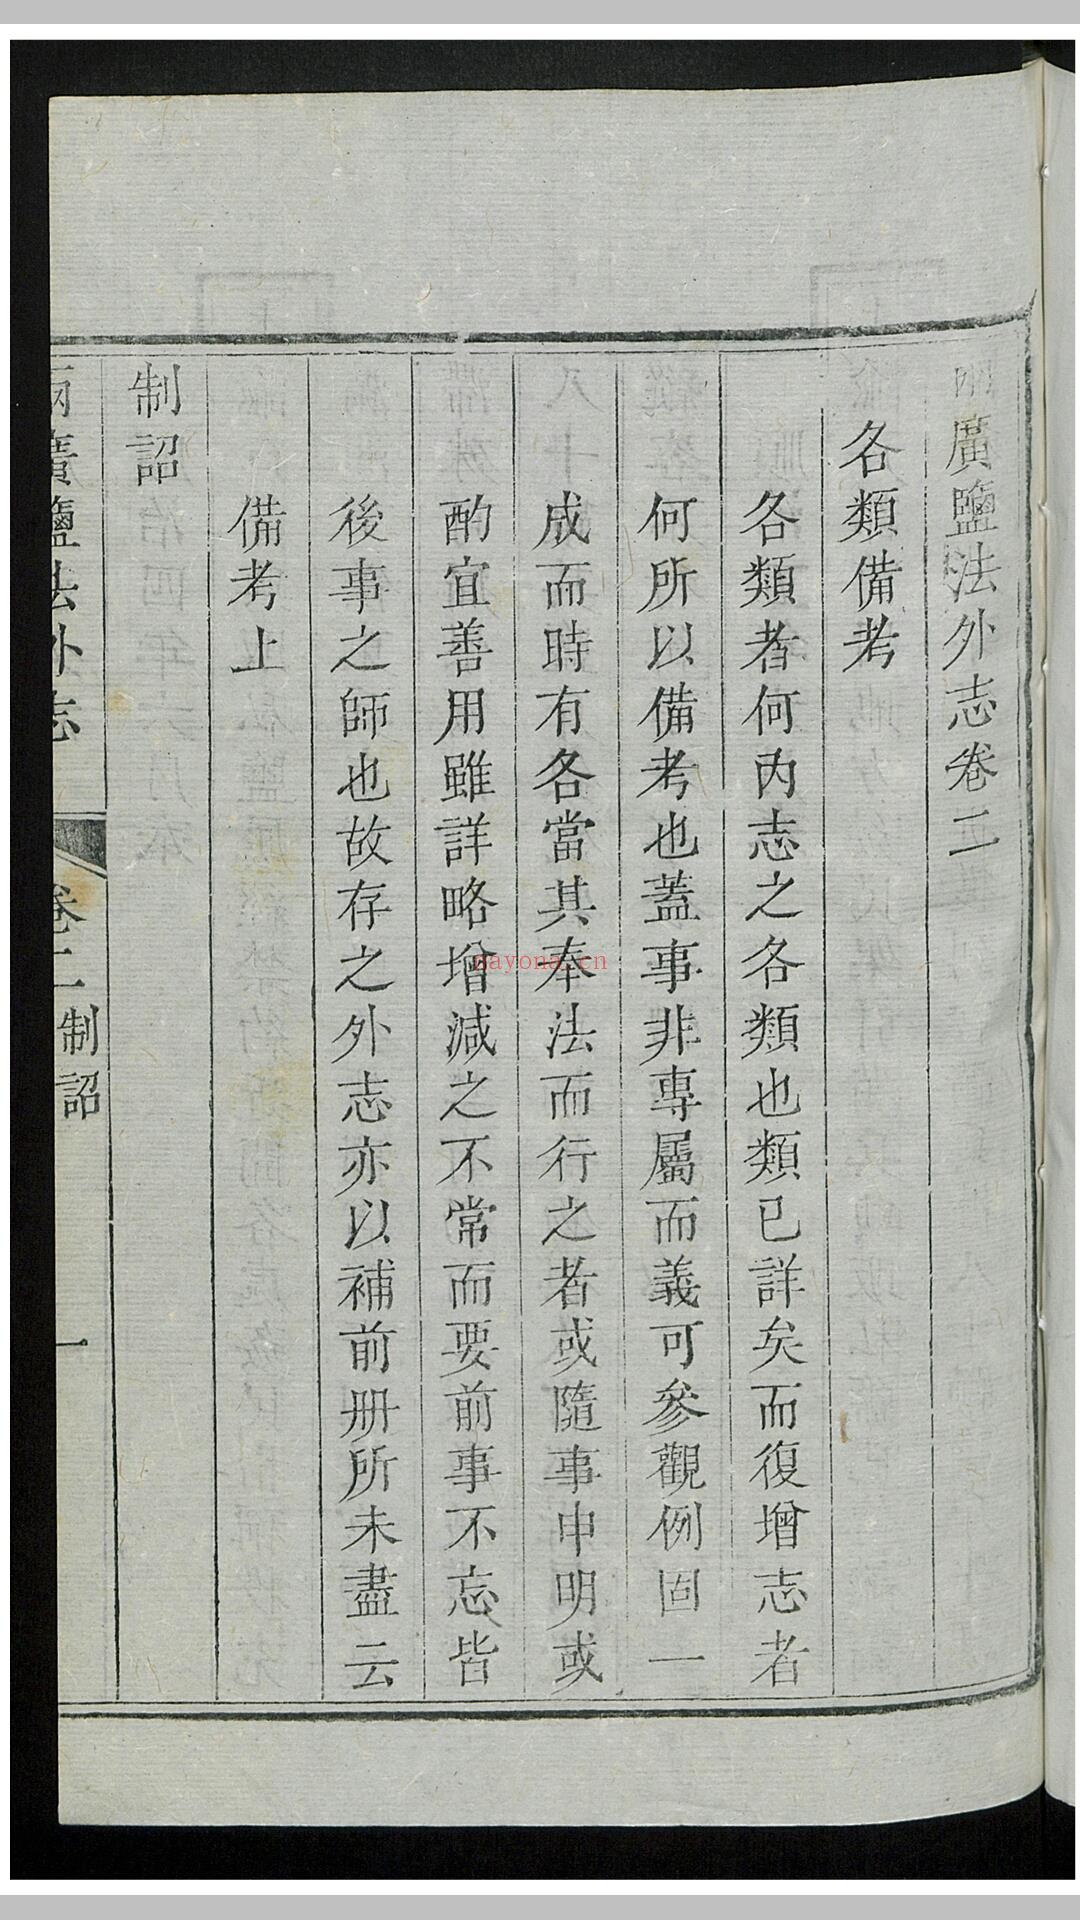 兩廣鹽法外志卷二
各類備考
各類者何內志之各類也類已詳矣而復增志者
何所以備考也蓋事非專屬而義可參觀例固一
成而時有各當其奉法而行之者或隨事申明或
酌宜善用雖詳略增減之不常而要前事不忘皆
後事之師也故存之外志亦以補前册所未盡云
備考上
制詔
兩廣鹽法外志 卷二 制詔 一
nayona.cn